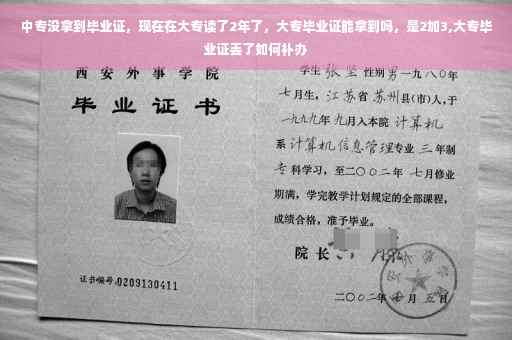 中专没拿到毕业证，现在在大专读了2年了，大专毕业证能拿到吗，是2加3,大专毕
业证丢了如何补办
西安外事学院
毕业证书
证书编号:0209130411
学生 张坚 性别 男 一九八〇年
七月生，江苏省 苏州 县(市)人，于
一九九九年 九月入本院 计算机
系 计算机信息管理 专业 三 年制
专 科学习，至二〇〇二年 七月修业
期满，学完教学计划规定的全部课程，
成绩合格，准予毕业。
院长
二〇〇二年 月 五日